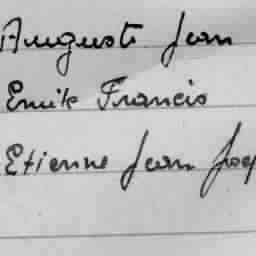 Auguste Jean
Emile Francis
Etienne Jean